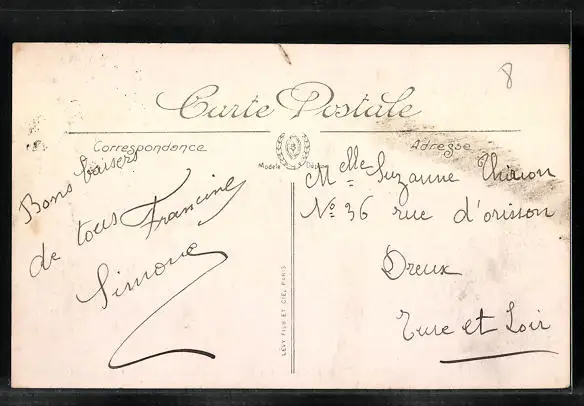 8
Carte Postale
Correspondance
Adresse
Modèle Déposé
Bons baisers
de tous Francine
Simone
Melle Suzanne Thirion
No 36 rue d'orisson
Dreux
Eure et Loir
LÉVY FILS ET CIE, PARIS